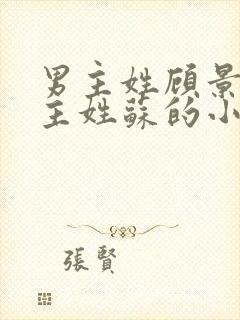 男主姓顾景
主姓蘇的小
張賢